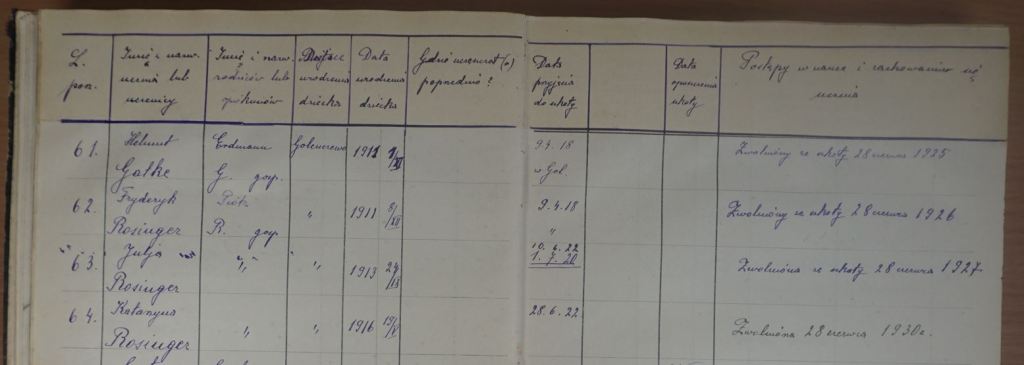 L. Imię i nazw. Imię i nazw. Miejsce Data Gdzie uczęszczał (a) Data Data Postępy w nauce i zachowanie się
por. ucznia lub rodziców lub urodzenia urodzenia poprzednio? przyjęcia opuszczenia ucznia
uczenicy opiekunów dziecka dziecka do szkoły szkoły
61. Helmut Erdmann Golenczewo 1911 9.4.18 Zwolniony ze szkoły 28 czerwca 1925
Gatke G. gosp. w Gol.
62. Fryderyk Piotr " 1911 8/XII 9.4.18 Zwolniony ze szkoły 28 czerwca 1926
Rosinger R. gosp "
63. Julja " " 1913 10.4.22
Rosinger 1.7.20 Zwolniona ze szkoły 28 czerwca 1927
64. Katarzyna " " 1916 19/V 28.6.22
Rosinger Zwolniona 28 czerwca 1930r.